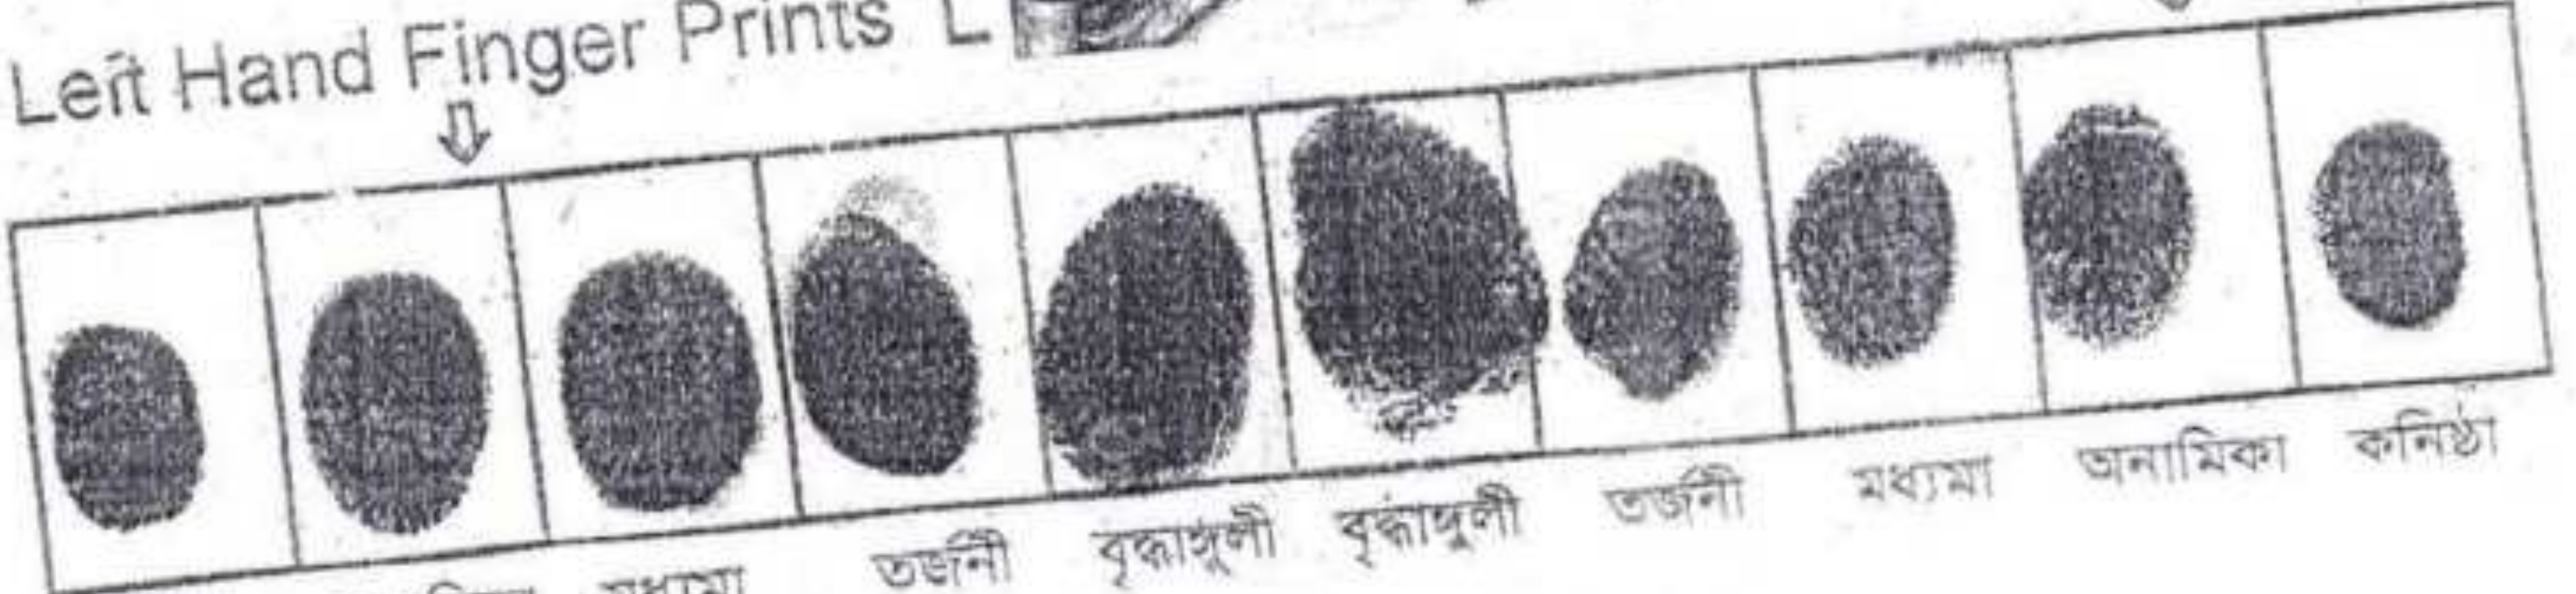 Left Hand Finger Prints L
মধ্যমা তর্জনী বৃদ্ধাঙ্গুলী বৃদ্ধাঙ্গুলী তর্জনী মধ্যমা অনামিকা কনিষ্ঠা